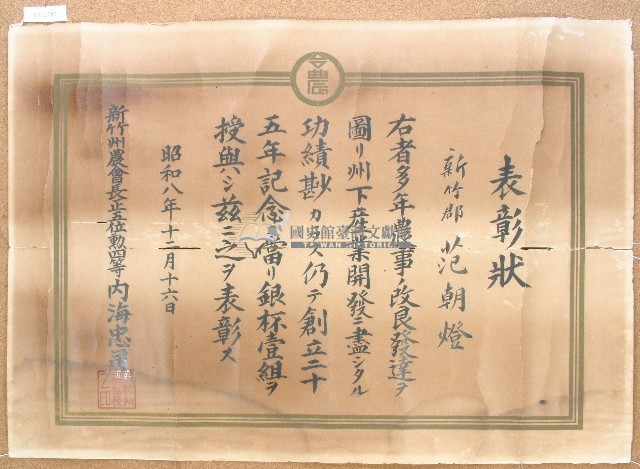 農
表彰狀
新竹郡 范朝燈
右者多年農事ノ改良發達ヲ
圖リ州下産業開發ニ盡シタル
功績尠カラス仍テ創立二十
五年記念ニ當リ銀杯壹組ヲ
授與シ茲ニ之ヲ表彰ス
昭和八年十二月十六日
新竹州農會長正五位勳四等內海忠司
國史館臺灣文獻館
TAIWAN HISTORICA